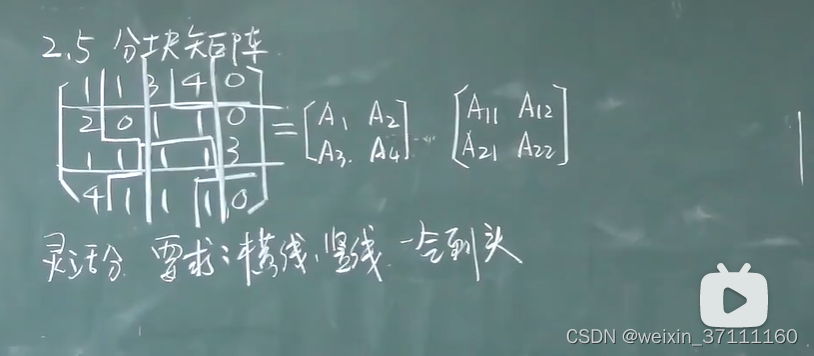 2.5 分块矩阵
1 1 3 4 0
2 0 1 1 0
1 1 1 1 3
4 1 1 1 0
= [A₁ A₂
A₃. A₄]
[A₁₁ A₁₂
A₂₁ A₂₂]
灵活分 要求:横线、竖线 一分到头
CSDN @weixin_37111160